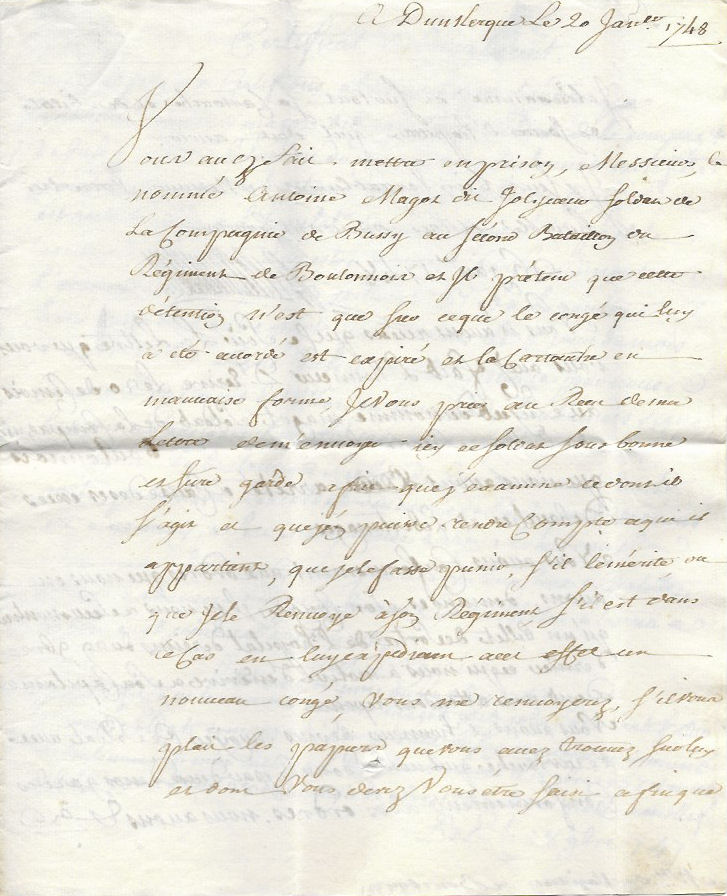 A Dunkerque Le 20 Janer. 1748
Vous avez fait mettre en prison, Messieurs, le
nommé Antoine Magot dit Jolycoeur soldat de
La Compagnie de Bussy au second Bataillon du
Régiment de Boulonnois et Il prétend que cette
détention n'est que sur ceque le congé qui luy
a été accordé est expiré et la Cartouche en
mauvaise forme, Je Vous prie au Receu de ma
Lettre de m'envoyer icy ce soldat sous bonne
et sure garde afin que j'examine ce dont il
s'agit et que j'en puisse rendre Compte a qui il
appartient, que je le fasse punir, s'il le mérite ou
que Je le Renvoye a son Régiment s'il est dans
ce Cas en luy expediant acet effet un
nouveau congé, Vous me renvoyerez, s'il vous
plait les papiers que vous avez trouvez sur luy
et dont Vous devez Vous etre saisi afin que